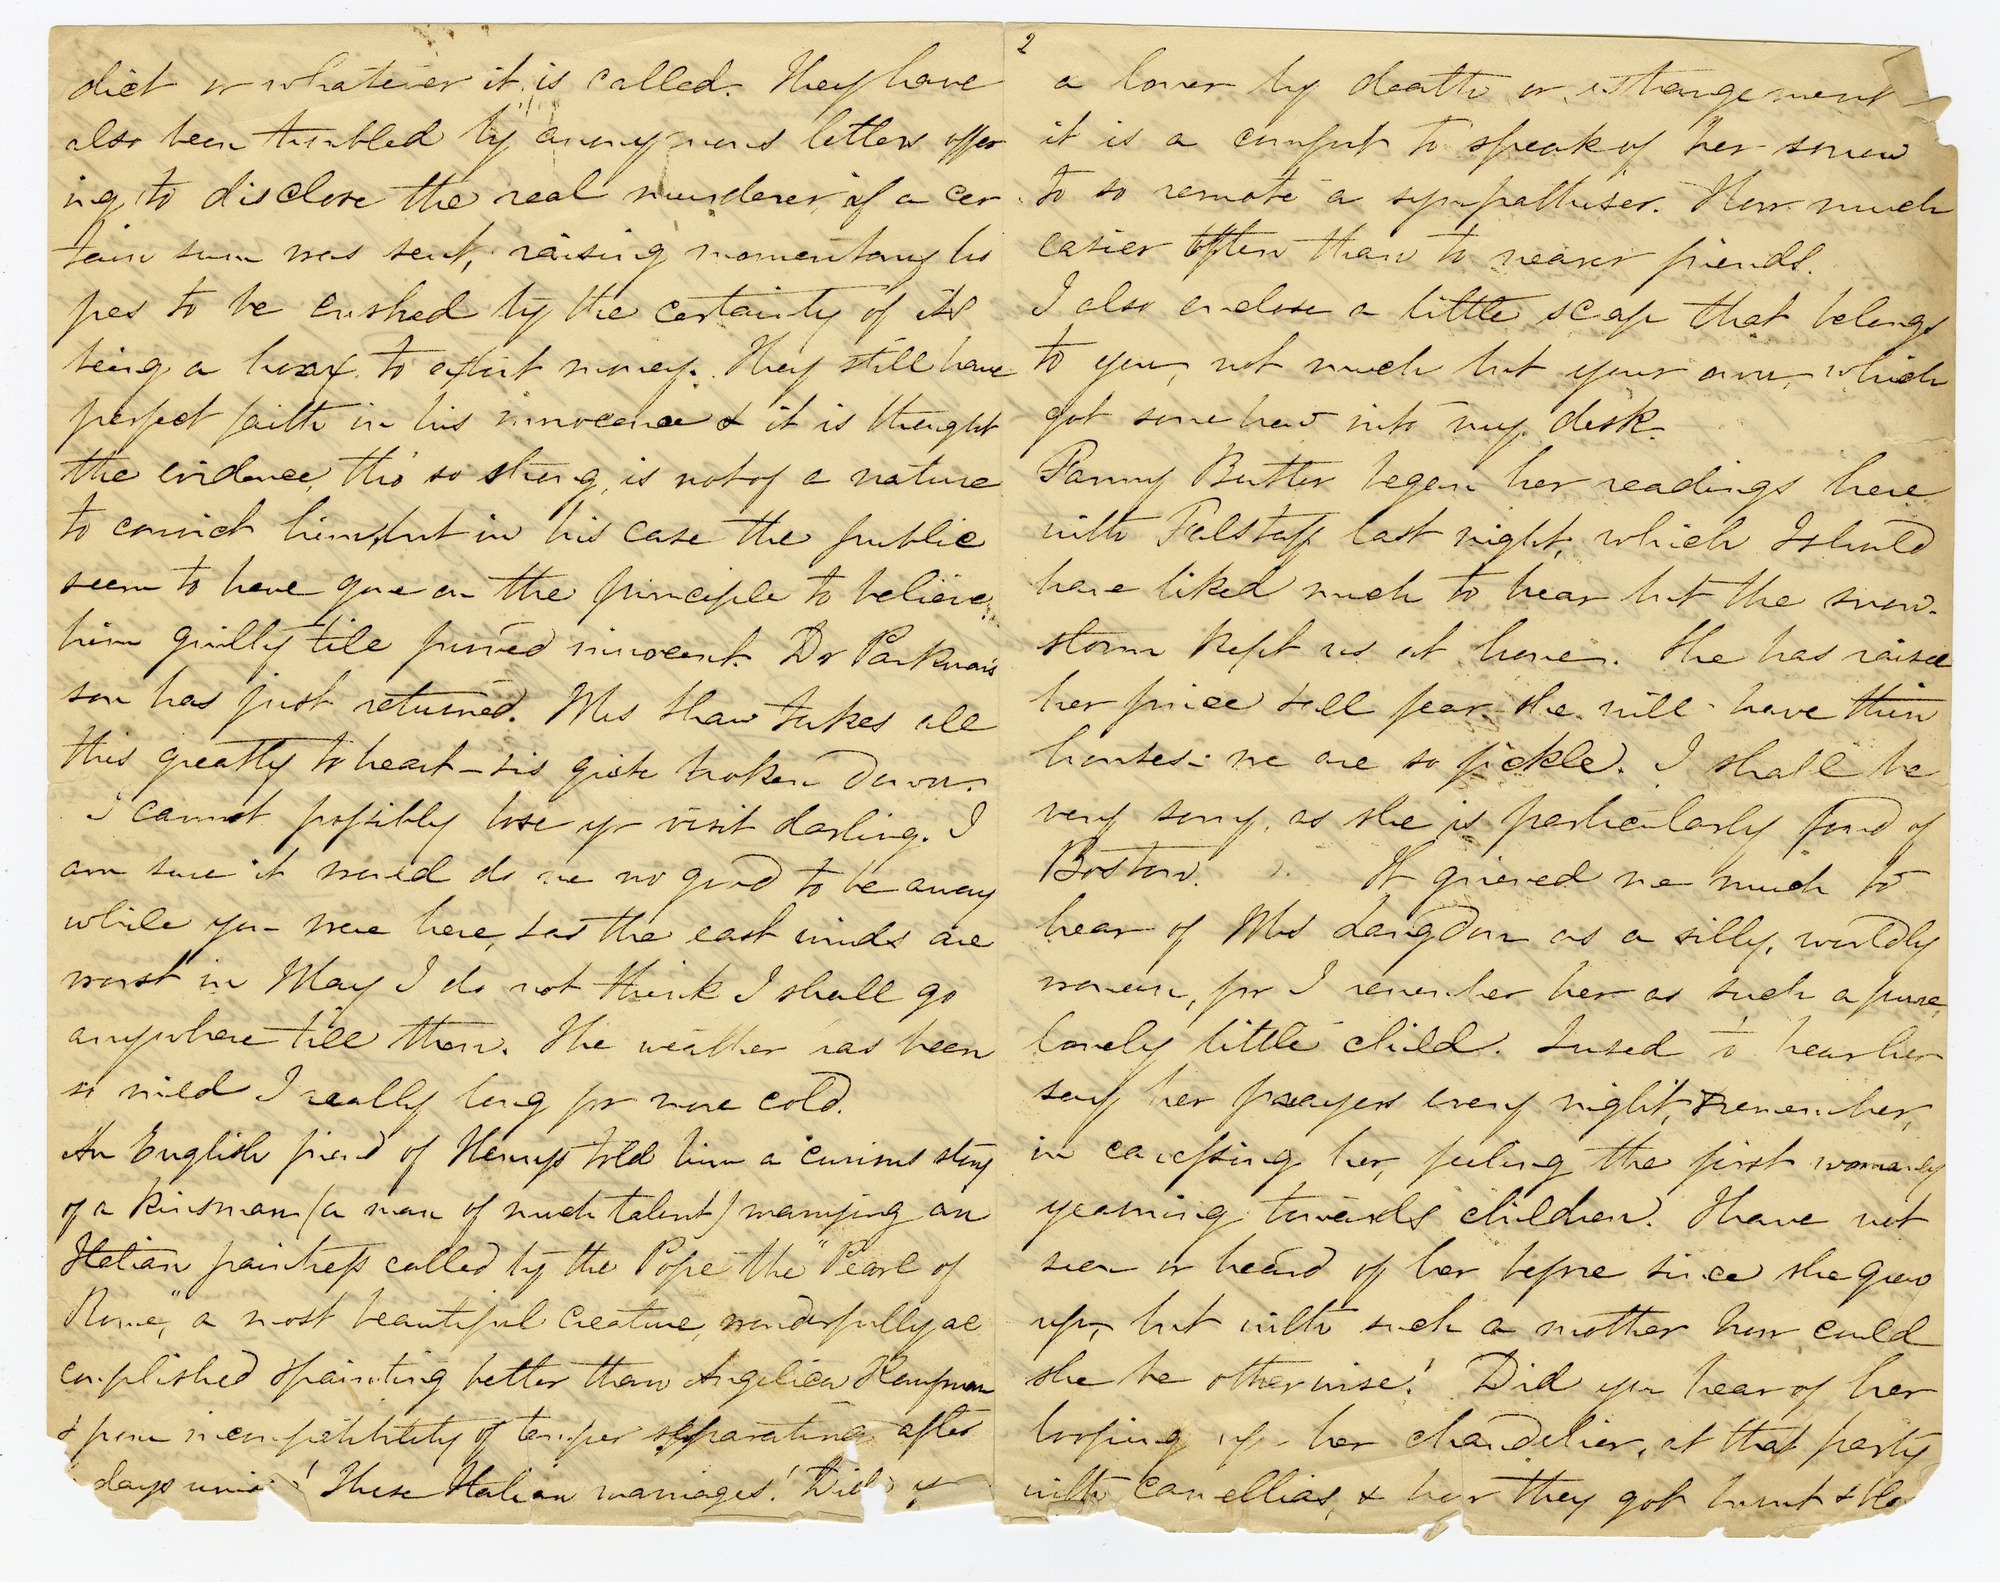 dict or whatever it is called. They have
also been troubled by anonymous letters offer
ing to disclose the real murderer, if a cer
tain sum was sent, raising momentary ho
pes to be crushed by the certainty of its
being a hoax to extort money. They still have
perfect faith in his innocence & it is thought
the evidence, tho' so strong, is not of a nature
to convict him, but in his case the public
seem to have gone on the principle to believe
him guilty till proved innocent. Dr Parkman's
son has just returned. Mrs Shaw takes all
this greatly to heart – is quite broken down.
I cannot possibly lose yr visit darling. I
am sure it would do me no good to be away
while you were here, & as the east winds are
worst in May I do not think I shall go
anywhere till then. The weather has been
so mild I really long for more cold.
An English friend of Henry's told him a curious story
of a kinsman (a man of much talent) marrying an
Italian paintress called by the Pope the "Pearl of
Rome", a most beautiful creature, wonderfully ac
complished & painting better than Angelica Kaufman
& from incompatibility of temper separating after
days union! These Italian marriages! Did
2
a lover by death or estrangement
it is a comfort to speak of her sorrow
to so remote a sympathiser. How much
easier often than to nearer friends.
I also enclose a little scrap that belongs
to you, not much but your own, which
got somehow into my desk.
Fanny Butler began her readings here
with Falstaff last night, which I should
have liked much to hear but the snow-
storm kept us at home. She has raised
her price & all fear she will have thin
houses – we are so fickle. I shall be
very sorry, as she is particularly fond of
Boston. It grieved me much to
hear of Mrs Langdon as a silly, worldly
woman, for I remember her as such a pure,
lovely little child. I used to hear her
say her prayers every night, & remember,
in caressing her, feeling the first womanly
yearning towards children. I have not
seen or heard of her before since she grew
up, but with such a mother how could
she be otherwise! Did you hear of her
looping up her chandelier, at that party
with Camellias, & how they got burnt &